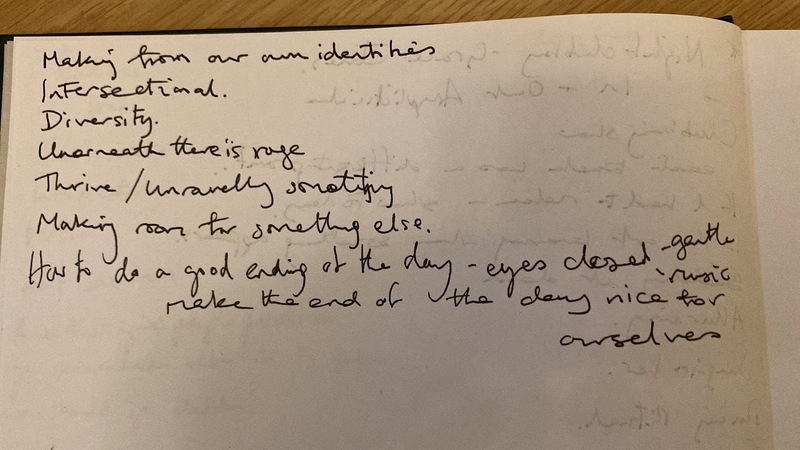 Making from our own identities
Intersectional.
Diversity.
Unerneath there is rage
Thrive / Unravelly
Making room for something else.
How to do a good ending of the day - eyes closed - gentle
- music
make the end of the day nice for
ourselves